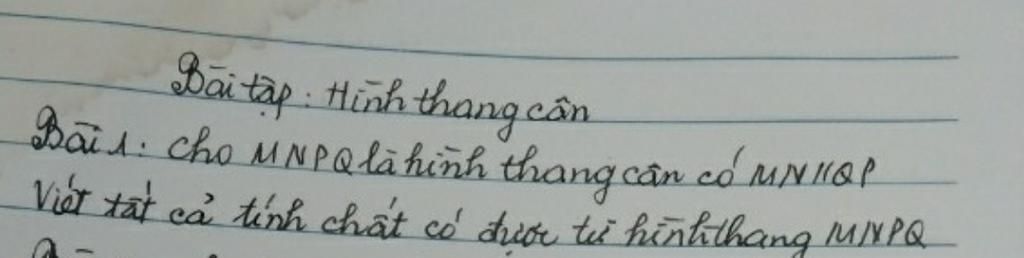 Bài tập: Hình thang cân
Bài 1: Cho MNPQ là hình thang cân có MN//QP
Viết tất cả tính chất có được từ hình thang MNPQ